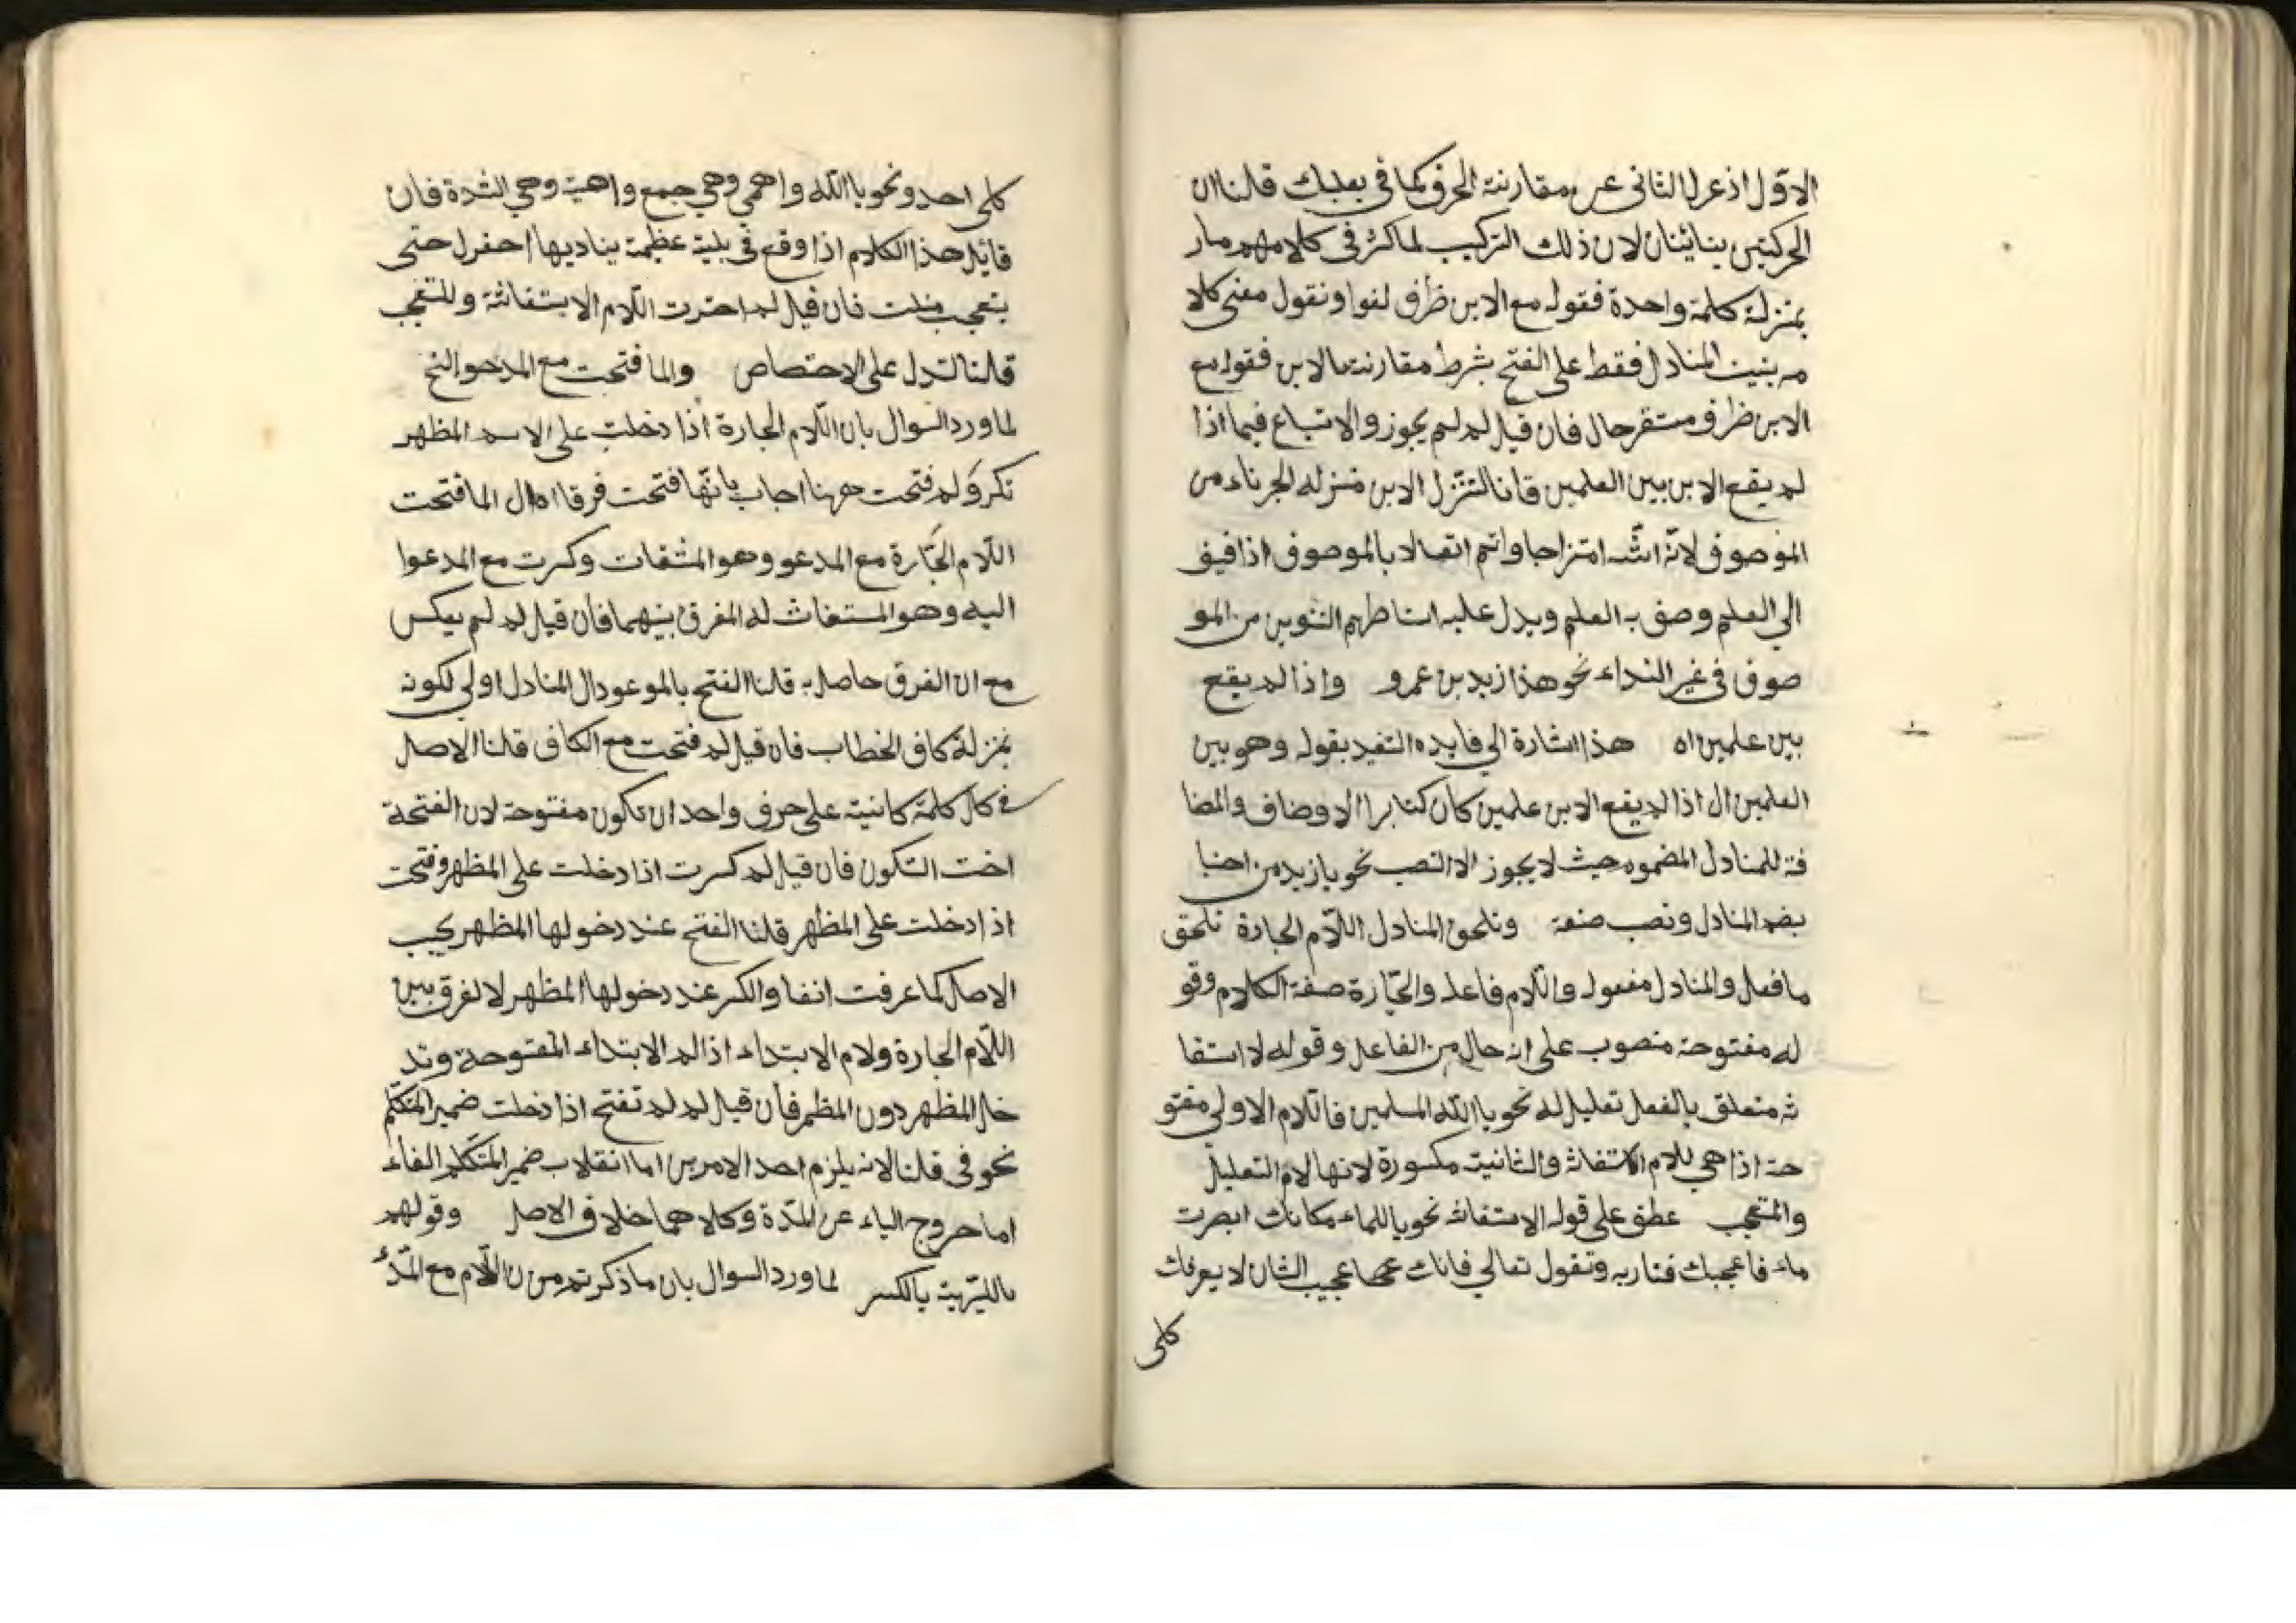 الاول اذ عرل الثانى عن مقارنة الحرف كما في بعلبك قلنا ان
الحركتين بنائيتان لان ذلك التركيب لما كثر في كلامهم صار
بمنزلة كلمة واحدة فقوله مع الابن ظرف لغوا ونقول معنى كلا
مه بنيت المنادل فقط على الفتح بشرط مقارنته بالابن فقوله مع
الابن ظرف مستقر حال فان قيل لم لم يجوز والاتباع فيما اذا
لم يقع الابن بين العلمين قلنا لتنزل الابن منزله الجزء من
الموصوف لانه اشد امتزاجا واتم اتصالا بالموصوف اذا
الي العلم وصف به العلم ويدل عليه التنوين من المو
صوف في غير النداء نحو هذا زيد بن عمرو واذا لم يقع
بين علمين اه هذا اشارة الي فايده التقيد بقوله وهو بين
العلمين ال اذا لم يقع الابن علمين كان كسائر الاوصاف والمضا
فة للمنادل المضمومه حيث لا يجوز الا النصب نحو يا زيد من
بضم المنادل ونصب صفة وتلحق المنادل اللام الجارة تلحق
ما فعل والمنادل مفعول واللام فاعل والجارة صفة الكلام وقو
له مفتوحة منصوب على انه حال من الفاعل وقوله لاستغا
ثه متعلق بالفعل تعليل له نحو يا الله المسلمين فاللام الاولى مفتو
حة اذا هي للام الاستغاثه والثانية مكسورة لانها لام التعليل
والمتعجب عطف على قوله الاستغاثه نحو يا للماء كانك ابصرت
ماء فاعجبك فناديه وتقول تعالي فانك عجيب الشان لا يعرفك
كلى
كلى احد ونحو يا الله واهي وهي جمع واهية وهي الشدة فان
قائل هذا الكلام اذا وقع في بلية عظيمة يناديها احضرل حتى
يتعجب منك فان قيل لم احترت اللام الاستغاثة وللتعجب
قلنا لتدل على الاختصاص والما فتحت مع المدعو الخ
لما ورد السوال بان اللام الجارة اذا دخلت على الاسم المظهر
تكر ولم فتحت ههنا اجاب بانها فتحت فرقا ال الما فتحت
اللام الجارة مع المدعو وهو المستغاث وكسرت مع المدعوا
اليه وهو المستغاث له المفرق بينهما فان قيل لم لم يعكس
مع ان الفرق حاصل به قلنا الفتح بالموعو دال المنادل اولى لكونه
بمنزلة كاف الخطاب فان قيل لم فتحت مع الكاف قلنا الاصل
في كال كلمة كانية على حرف واحد ان تكون مفتوحة لان الفتحة
اخت السكون فان قيل لم كسرت اذا دخلت على المظهر وفتحت
اذا دخلت على المظهر قلنا الفتح عند دخولها المظهر يجيب
الاصل كما عرفت انفا والكسر عند دخولها المظهر لا لفرق بين
اللام الجارة ولام الابتداء اذ الم الابتداء المفتوحة وتد
خل المظهر دون المظمر فان قيل لم لم تفتح اذا دخلت ضمير المتكلم
نحو في قلنا لانه يلزم احد الامرين اما انقلاب ضمير المتكلم الفاء
اما حروج الياء عن المدة وكلا هما خلاف الاصل وقولهم
بالكسر لما ورد السوال بان ما ذكر تم من ان اللام مع